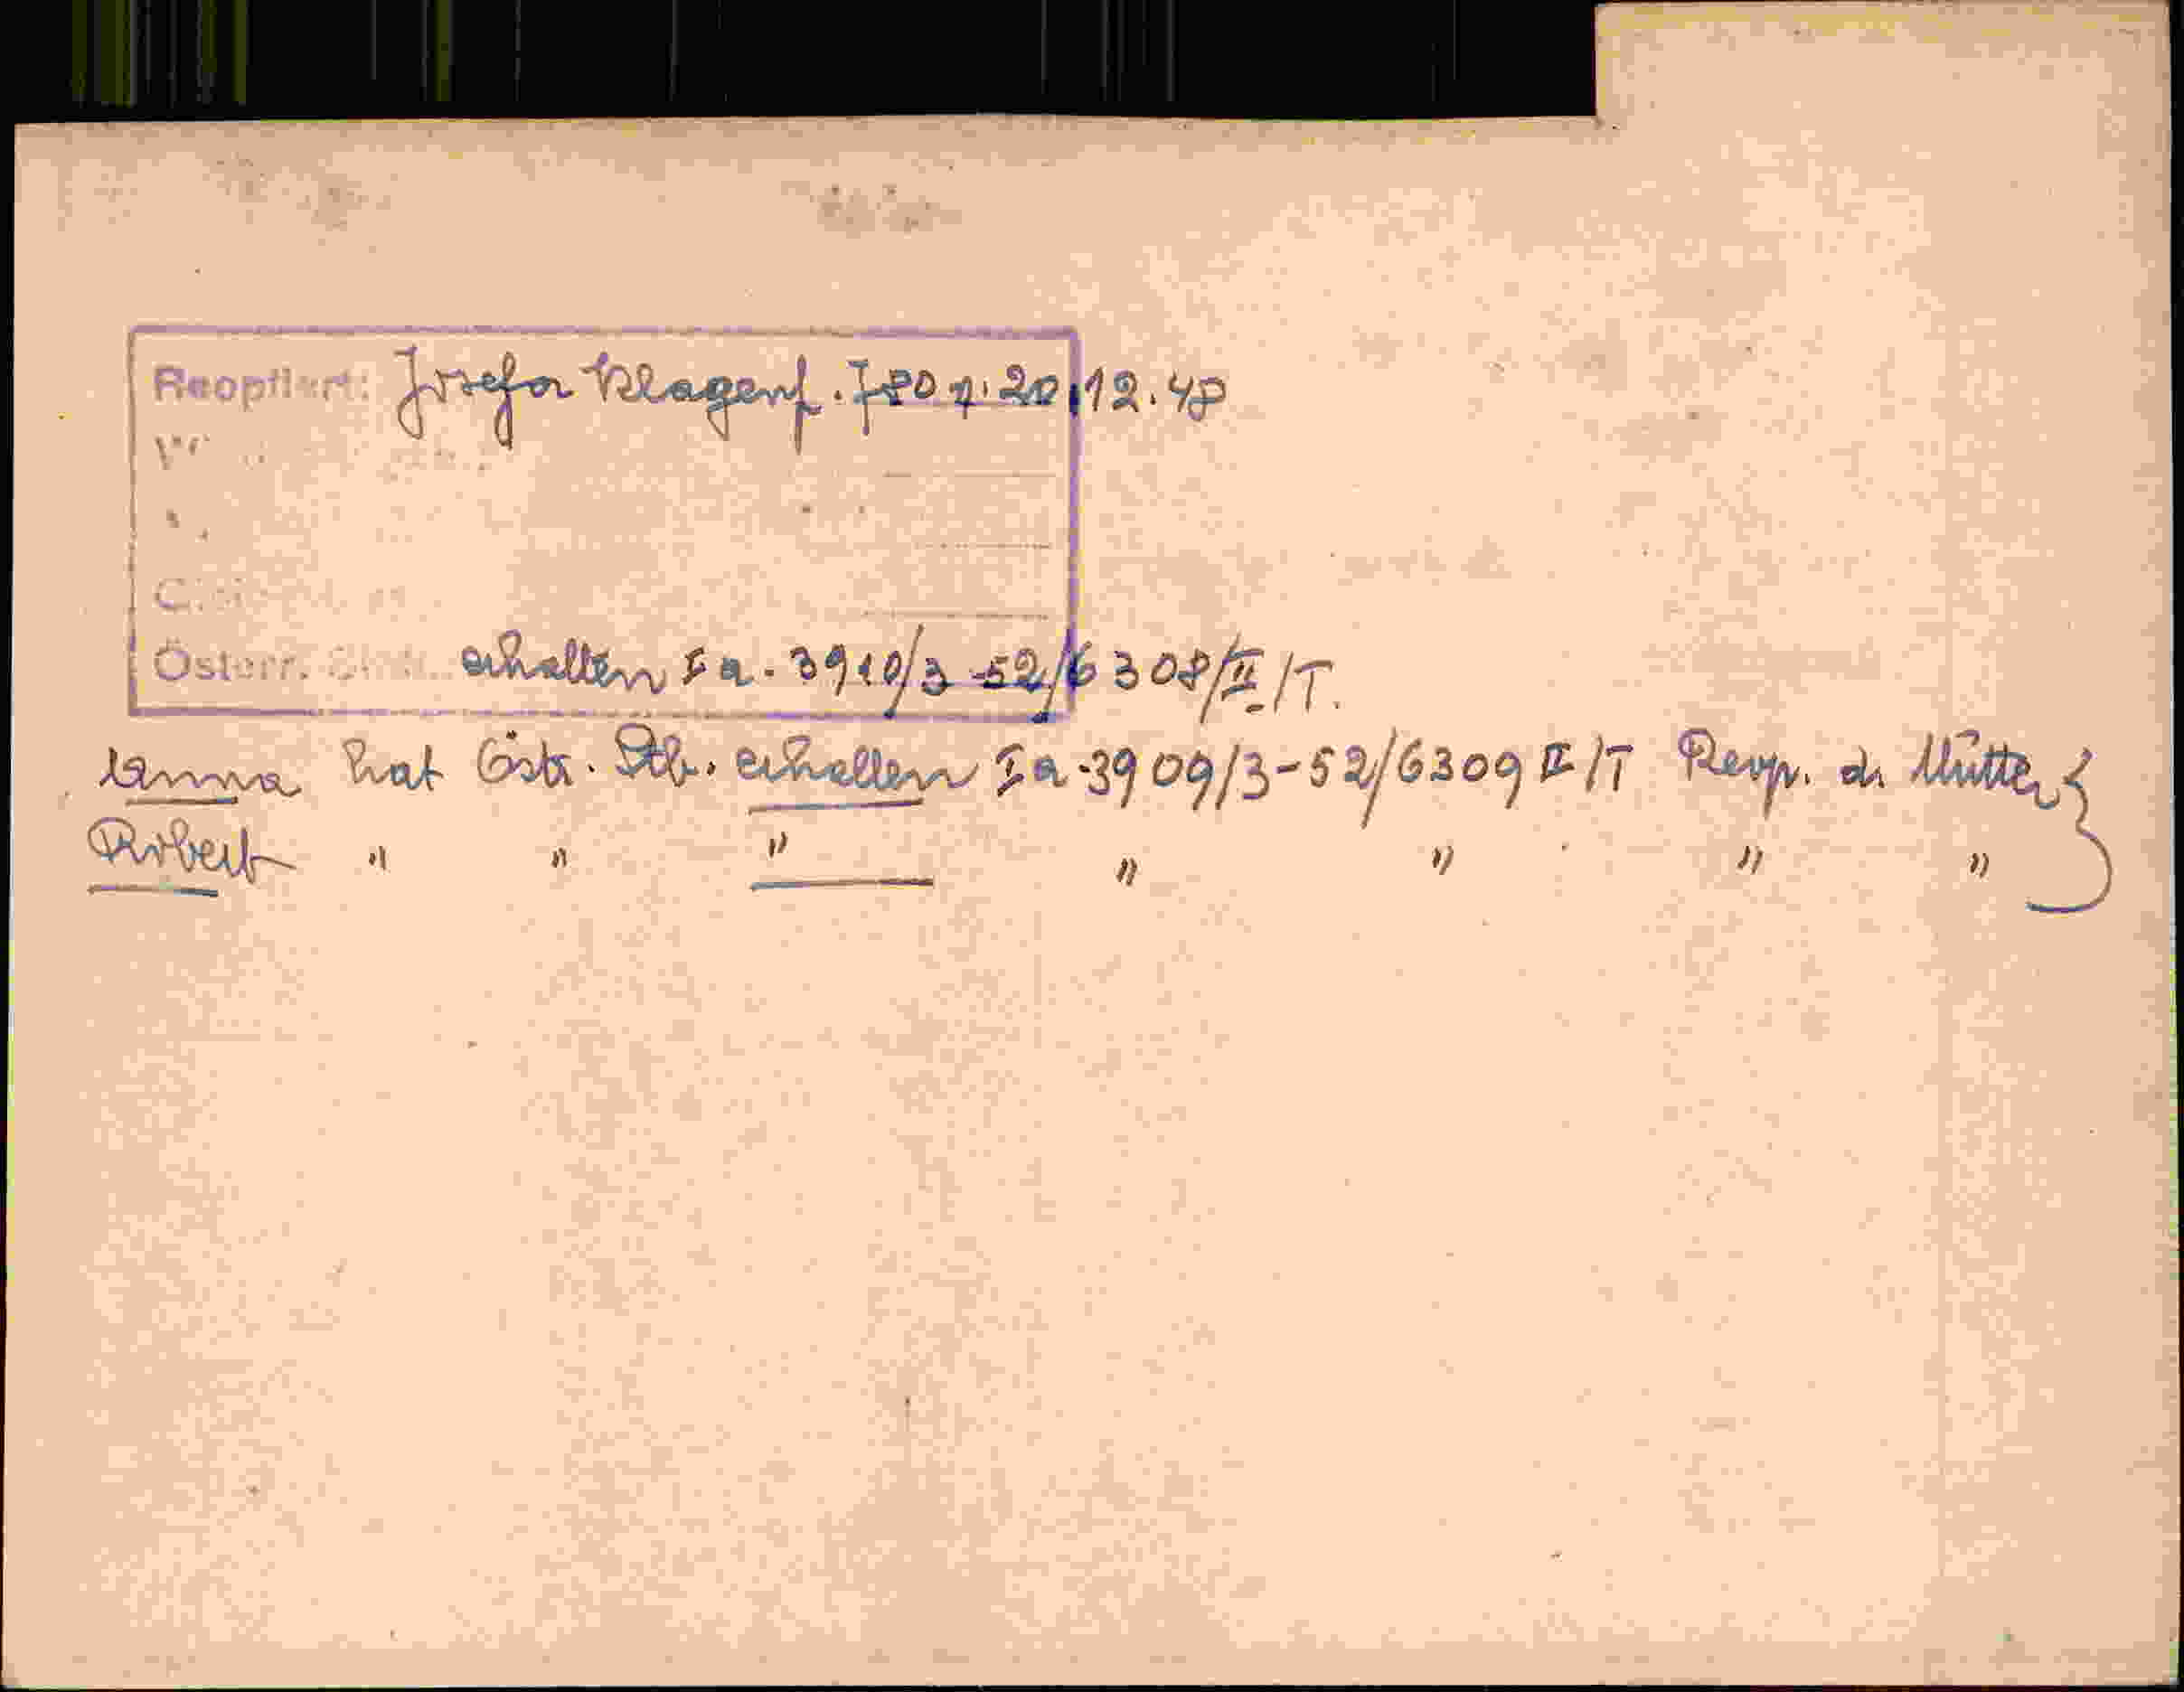 Reoptiert: Josefa Klagenf. J 80 7. 20.12.48
Österr. erhalten I a. 3910/3-52/6308/II/T.
Anna hat Östr. Stb. erhalten I a.3909/3-52/6309 II/T Reop. d. Mutter }
Robert " " " " " " "